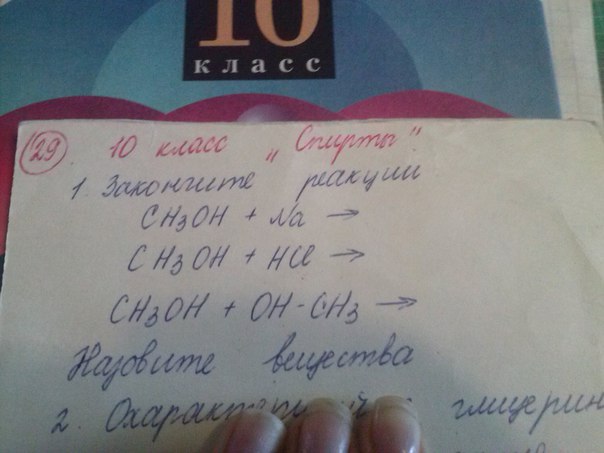 10
класс
29. 10 класс „Спирты".
1. Закончите реакции
CH3OH + Na →
CH3OH + HCl →
CH3OH + OH-CH3 →
Назовите вещества
2. глицерин